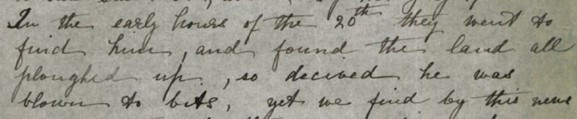 In the early hours of the 20th they went to
find him, and found the land all
ploughed up, so decived he was
blown to bits, yet we find by this news